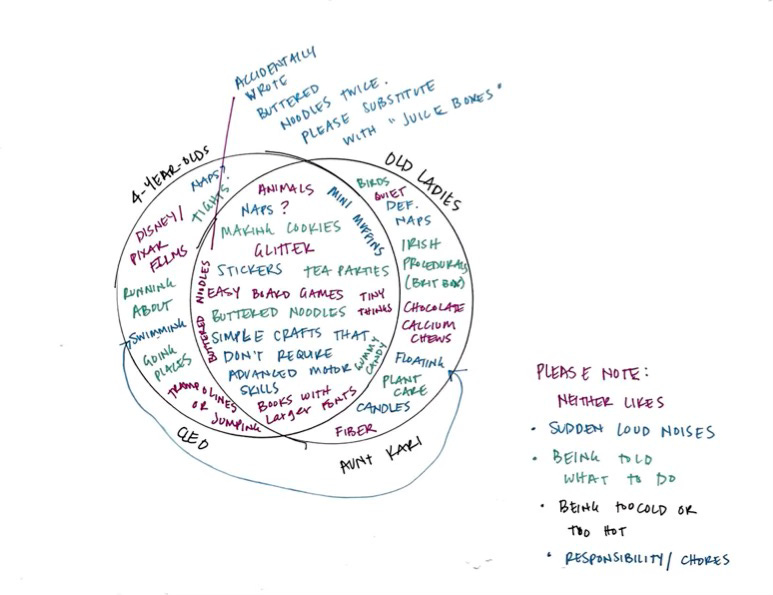 ACCIDENTALLY
WROTE
BUTTERED
NOODLES TWICE.
PLEASE SUBSTITUTE
WITH "JUICE BOXES"
4-YEAR-OLDS
OLD LADIES
NAPS?
TIGHTS
DISNEY/
PIXAR
FILMS
RUNNING
ABOUT
SWIMMING
GOING
PLACES
TRAMPOLINES
OR JUMPING
CLEO
ANIMALS
NAPS?
MINI MUFFINS
MAKING COOKIES
GLITTER
STICKERS
TEA PARTIES
BUTTERED NOODLES
EASY BOARD GAMES
TINY
THINGS
BUTTERED NOODLES
SIMPLE CRAFTS THAT
DON'T REQUIRE
ADVANCED MOTOR
SKILLS
GUMMY
CANDY
BOOKS WITH
LARGER FONTS
BIRDS
QUIET
DEF.
NAPS
IRISH
PROCEDURALS
(BRIT BOX)
CHOCOLATE
CALCIUM
CHEWS
FLOATING
PLANT
CARE
CANDLES
FIBER
AUNT KARI
PLEASE NOTE:
NEITHER LIKES
• SUDDEN LOUD NOISES
• BEING TOLD
WHAT TO DO
• BEING TOO COLD OR
TOO HOT
• RESPONSIBILITY/ CHORES